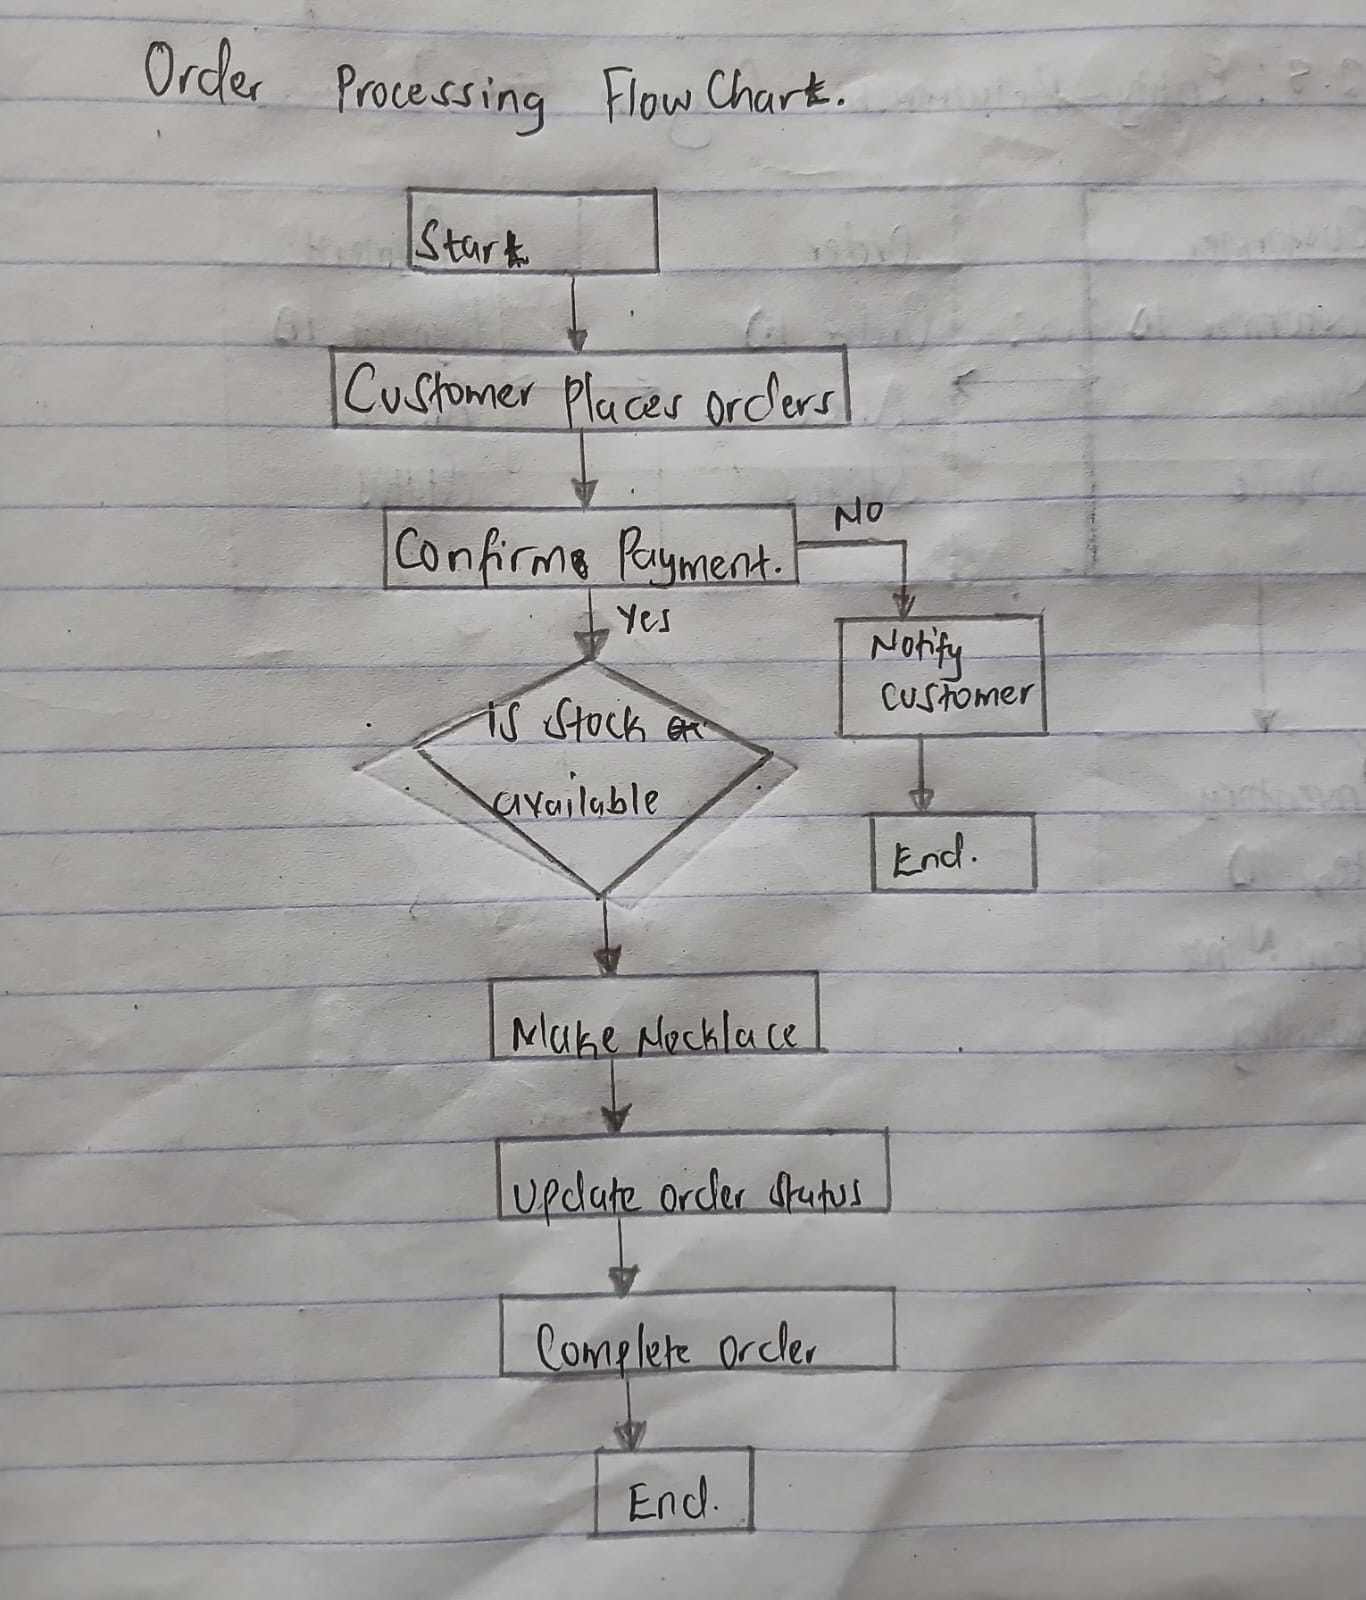 Order Processing Flow Chart.
Start
Customer Places orders
Confirm Payment.
NO
Yes
Notify
customer
is stock
available
End.
Make Necklace
Update order status
Complete order
End.